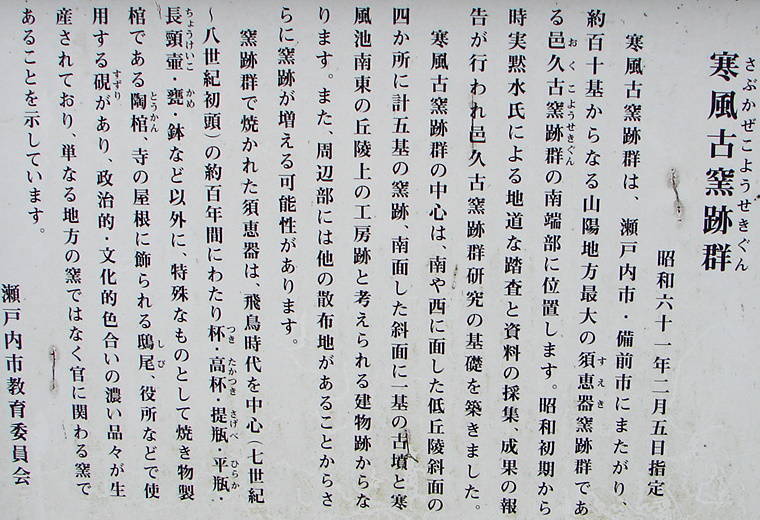 さぶかぜこようせきぐん
寒風古窯跡群
昭和六十一年二月五日指定
寒風古窯跡群は、瀬戸内市・備前市にまたがり、
約百十基からなる山陽地方最大の須恵器窯跡群であ
すえき
る邑久古窯跡群の南端部に位置します。昭和初期から
おくこようせきぐん
時実黙水氏による地道な踏査と資料の採集、成果の報
告が行われ邑久古窯跡群研究の基礎を築きました。
寒風古窯跡群の中心は、南や西に面した低丘陵斜面の
四か所に計五基の窯跡、南面した斜面に一基の古墳と寒
風池南東の丘陵上の工房跡と考えられる建物跡からな
ります。また、周辺部には他の散布地があることからさ
らに窯跡が増える可能性があります。
窯跡群で焼かれた須恵器は、飛鳥時代を中心（七世紀
～八世紀初頭）の約百年間にわたり杯・高杯・提瓶・平瓶・
つき たかつき さげべ ひらか
長頸壷・甕・鉢など以外に、特殊なものとして焼き物製
ちょうけいこ かめ
棺である陶棺・寺の屋根に飾られる鴟尾・役所などで使
とうかん しび
用する硯があり、政治的・文化的色合いの濃い品々が生
すずり
産されており、単なる地方の窯ではなく官に関わる窯で
あることを示しています。
瀬戸内市教育委員会